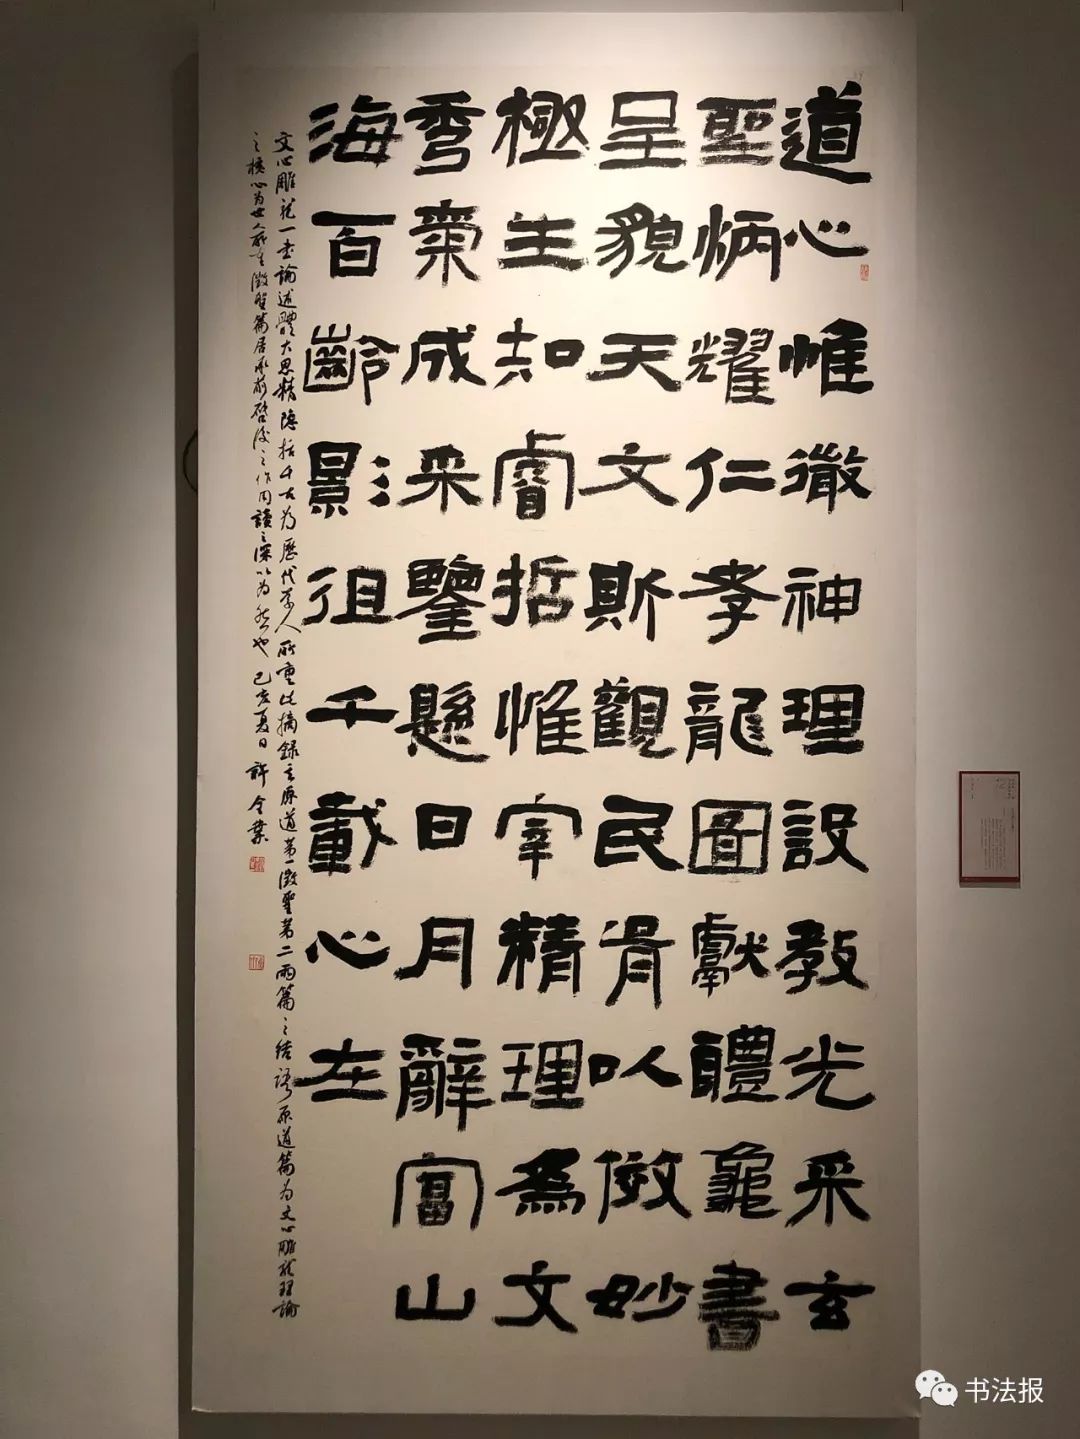 道心惟微神理設教光采玄
聖炳耀仁孝龍圖獻體龜書
呈貌天文斯觀民胥以傚妙
極生知睿哲惟宰精理為文
秀氣成采鑒懸日月辭富山
海百齡影徂千載心在
文心雕龍一書論述體大思精隱括千古為歷代學人所重此摘錄其原道第一徵聖第二兩篇之結語原道篇為文心雕龍理論
之核心為世人所重徵聖篇居承前啓後之作用讀之深以為然也己亥夏日許全業
书法报